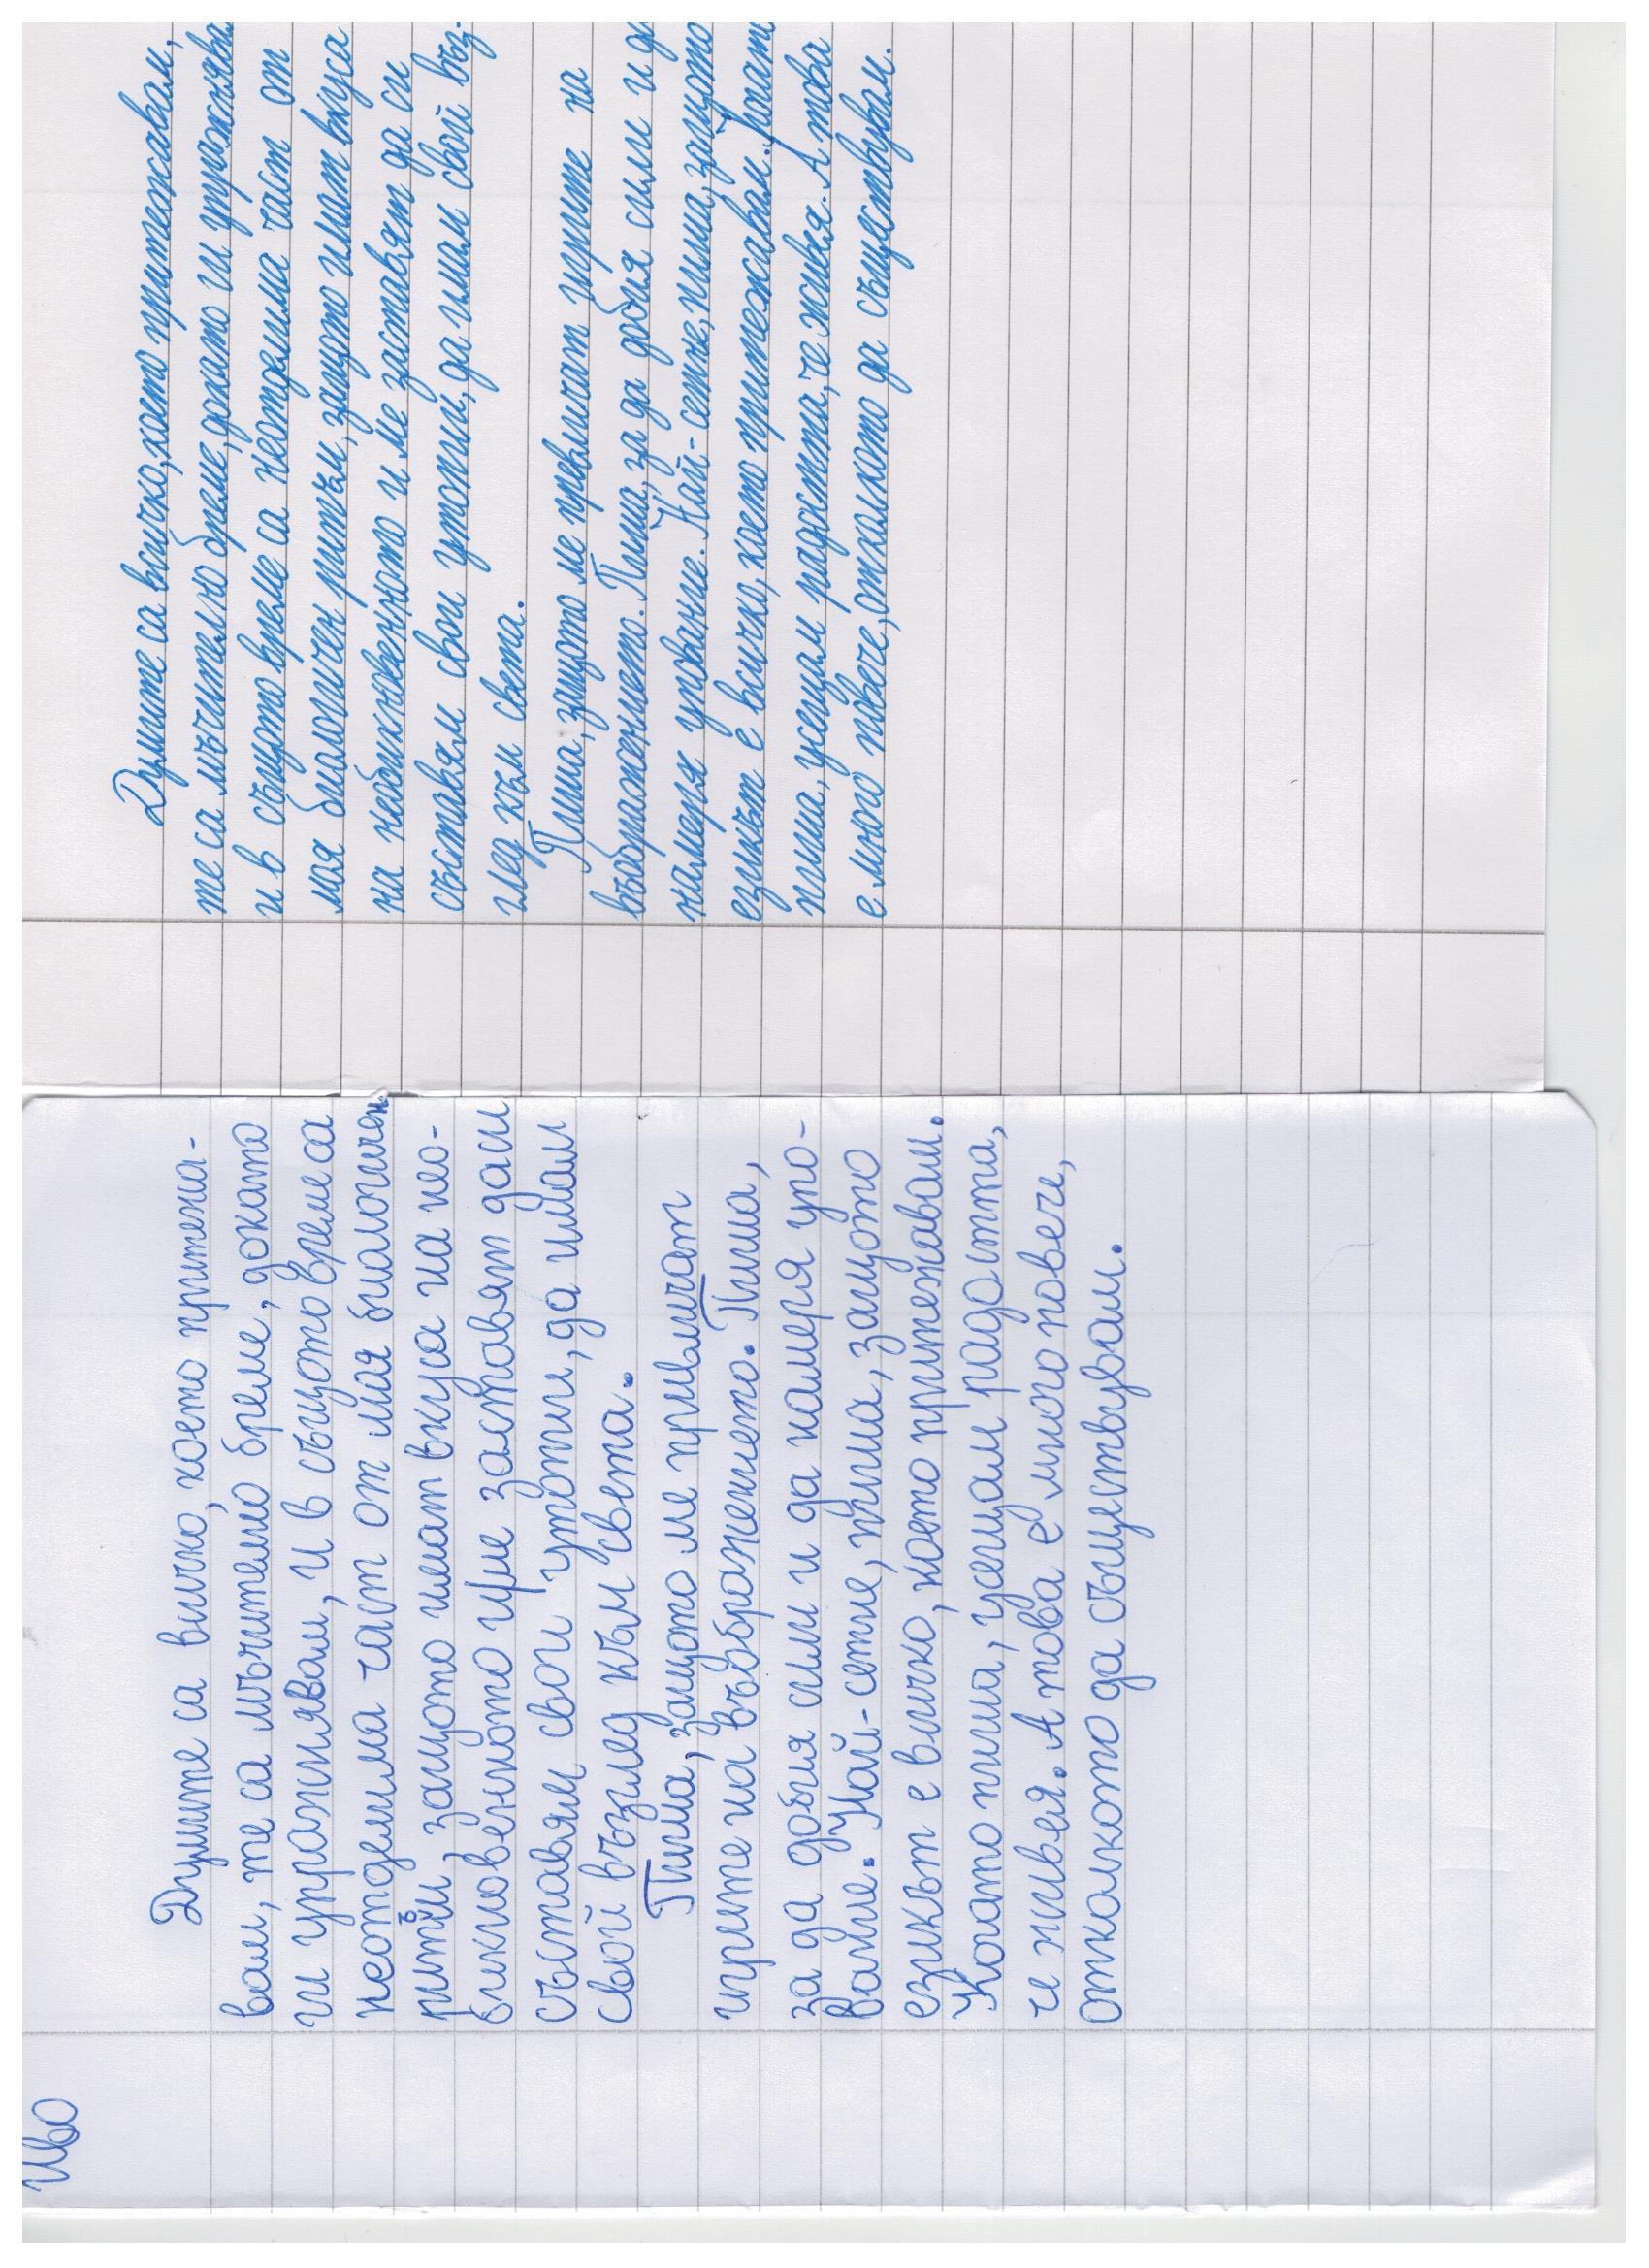 Иво
Думите са всичко, което притежа-
вам, те са мъчително бреме, докато
ги упражнявам, и в същото време са
неотделима част от мия биологичен
ритъм, защото имат вкуса на нео-
бикновеното и ме заставят да си
съставям свои утопии, да имам
свой възглед към света.
Пиша, защото ме привличат
игрите на въображението. Пиша,
за да добия сили и да намеря упо-
вание. Най-сетне, пиша, защото
езикът е всичко, което притежавам.
Когато пиша, усещам радостта,
че живея. А това е много повече,
отколкото да съществувам.
Думите са всичко, което притежавам,
те са мъчително бреме, докато ги упражнявам
и в същото време са неотделима част от
моя биологичен ритъм, защото имат вкуса
на необикновеното и ме заставят да си
съставям свои утопии, да имам свой въз-
глед към света.
Пиша, защото ме привличат игрите на
въображението. Пиша, за да добия сили и да
намеря упование. Най-сетне, пиша, защото
езикът е всичко, което притежавам.
пиша, усещам радостта, че живея. А това
е много повече, отколкото да съществувам.